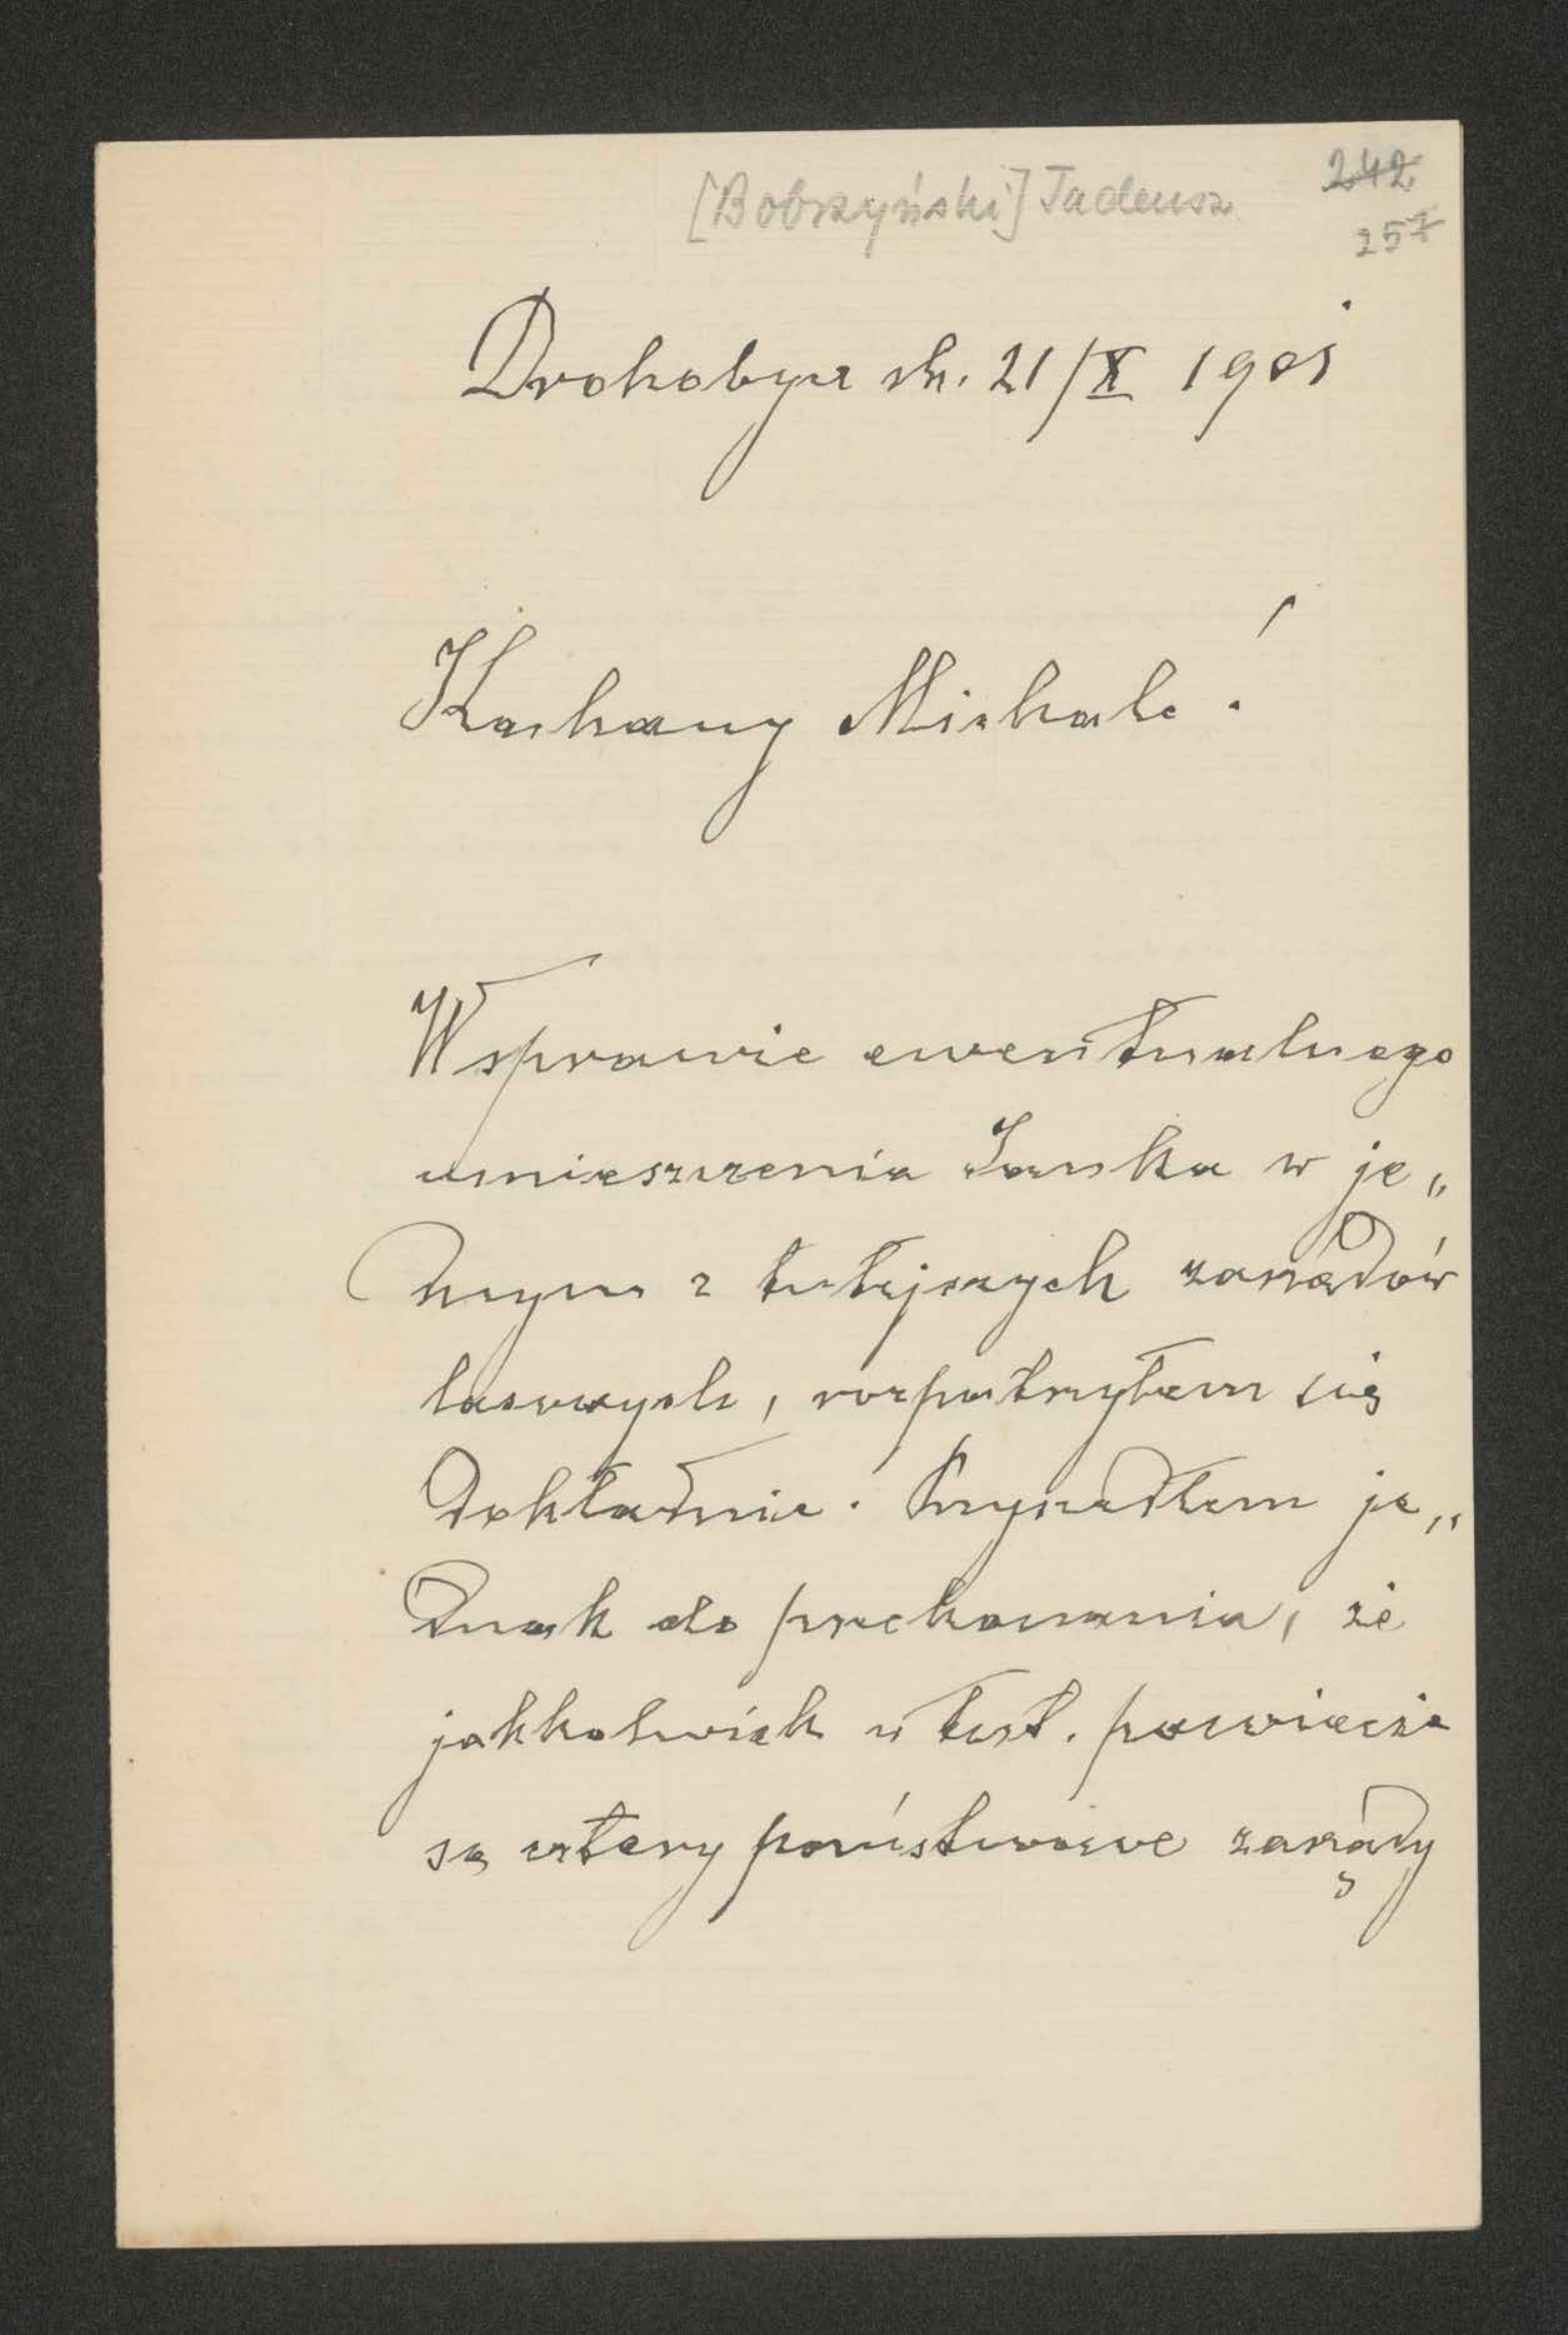 [Bobrzyński] Tadeusz
242
257
Drohobycz dn. 21/X 1901
Kochany Michale!
W sprawie ewentualnego
umieszczenia Janka w je„
dnym z tutejszych zarządów
lasowych, rozpatrzyłem się
dokładnie. Przyszedłem je„
dnak do przekonania, że
jakkolwiek w tut. powiecie
są cztery państwowe zarządy